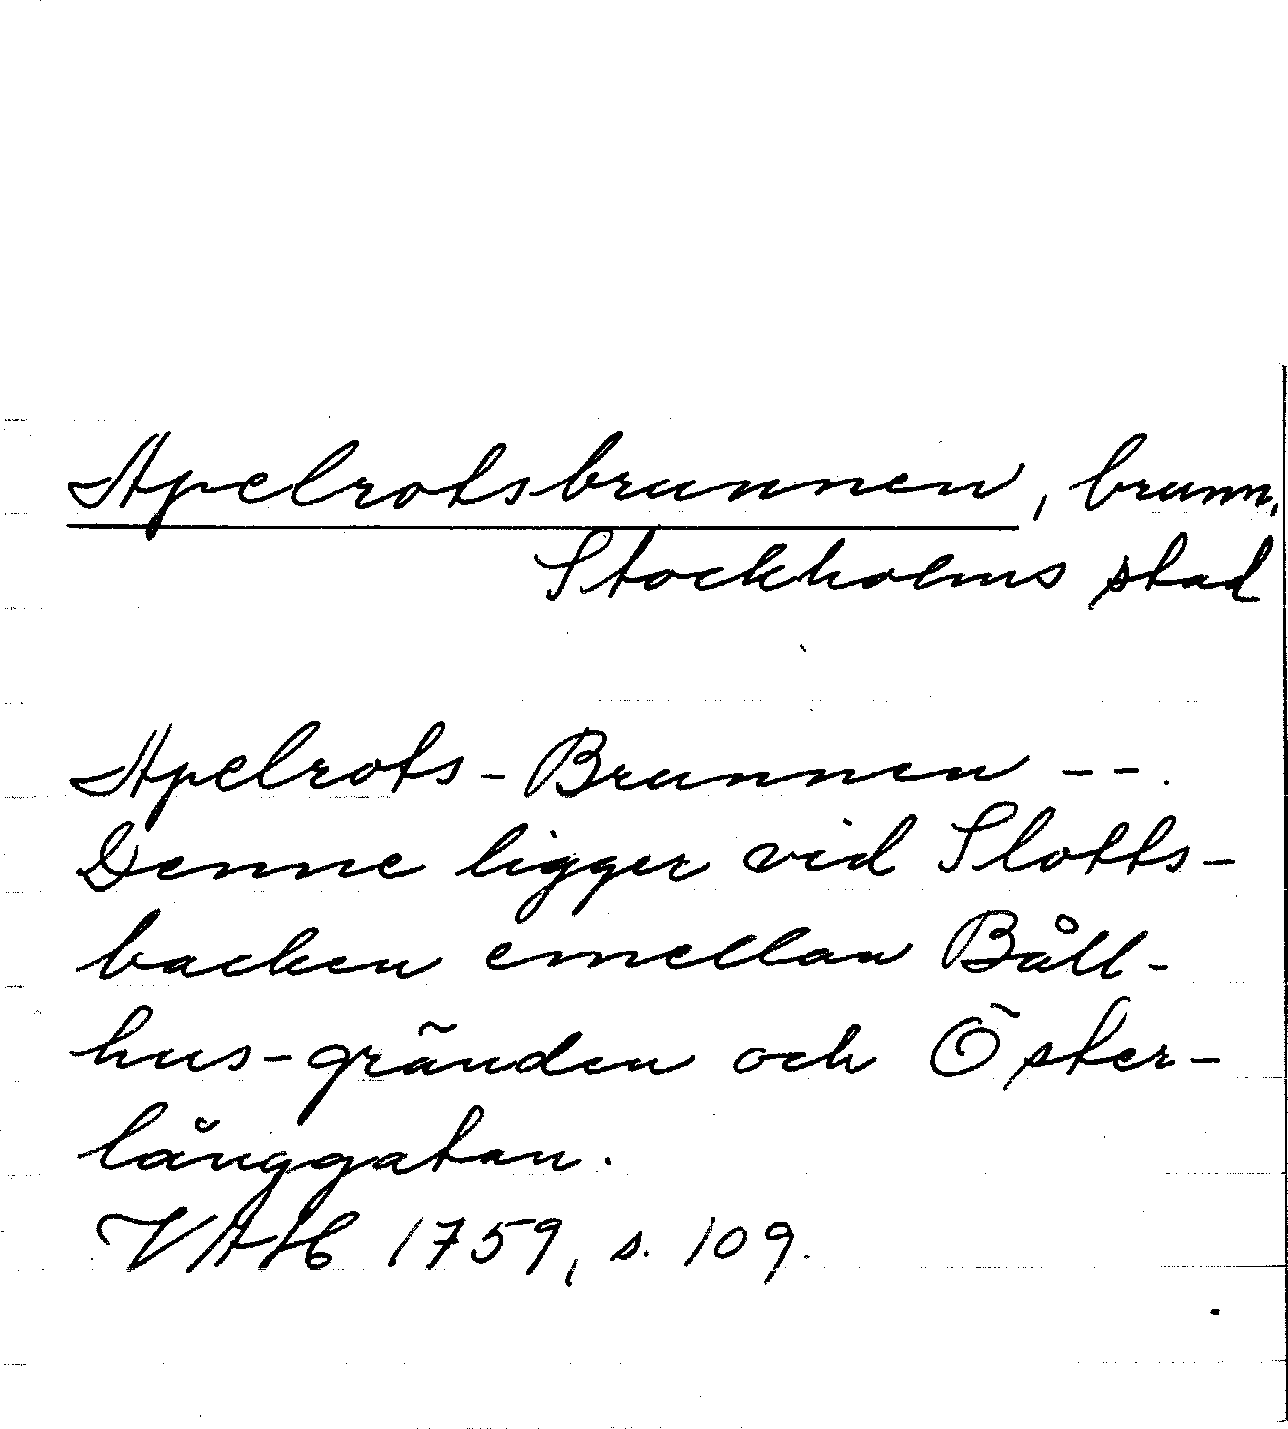 Apelrotsbrunnen, brunn,
Stockholms stad
Apelrots-Brunnen --.
Denne ligger vid Slotts-
backen emellan Båll-
hus-gränden och Öster-
långgatan.
VAH 1759, s. 109.